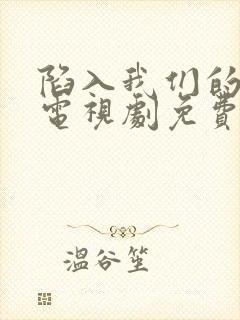 陷入我们的
電視劇免費
溫谷笙